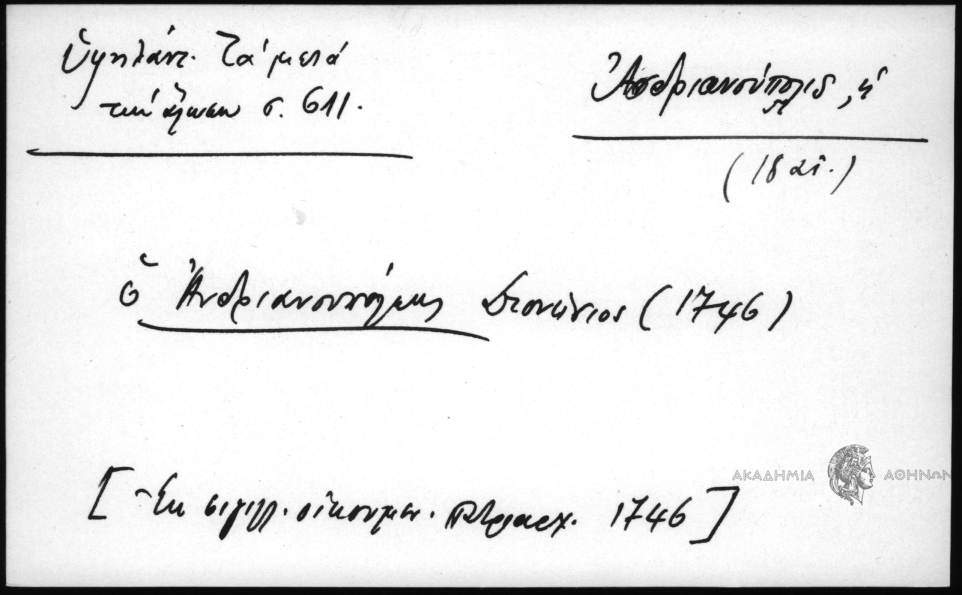 Ὑψηλάντ. Τὰ μετὰ
τὴν ἅλωσιν σ. 611.
Ἀδριανούπολις, ἡ
(18 αἰ.)
ὁ Ἀνδριανουπόλεως Διονύσιος (1746)
[Ἐκ σιγιλλ. οἰκουμεν. πατριαρχ. 1746]
ΑΚΑΔΗΜΙΑ ΑΘΗΝΩΝ